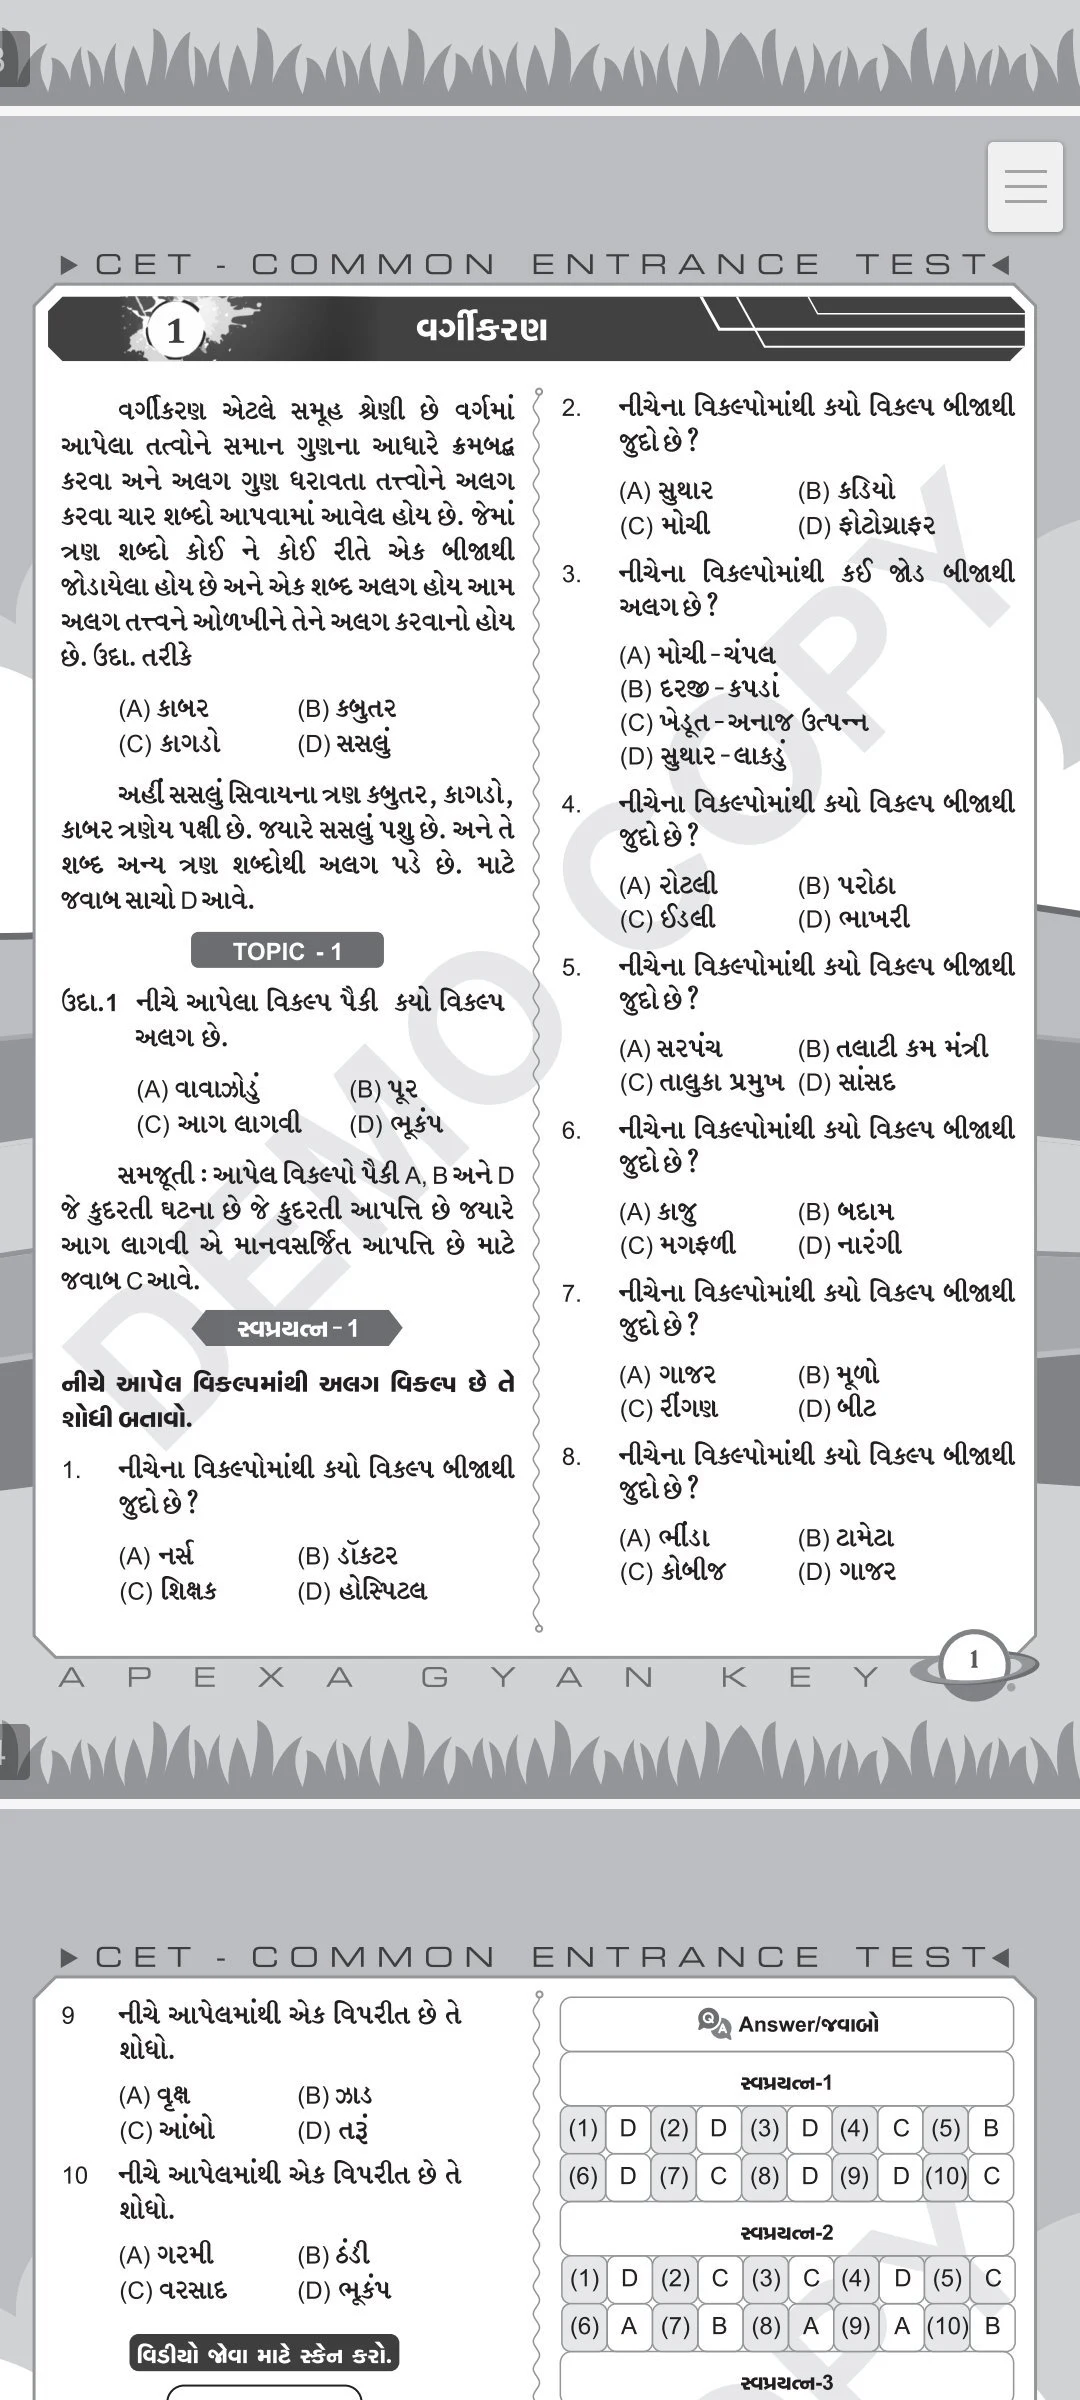 CET - COMMON ENTRANCE TEST
1
વર્ગીકરણ
વર્ગીકરણ એટલે સમૂહ શ્રેણી છે વર્ગમાં
આપેલા તત્વોને સમાન ગુણના આધારે ક્રમબદ્ધ
કરવા અને અલગ ગુણ ધરાવતા તત્ત્વોને અલગ
કરવા ચાર શબ્દો આપવામાં આવેલ હોય છે. જેમાં
ત્રણ શબ્દો કોઈ ને કોઈ રીતે એક બીજાથી
જોડાયેલા હોય છે અને એક શબ્દ અલગ હોય આમ
અલગ તત્ત્વને ઓળખીને તેને અલગ કરવાનો હોય
છે. ઉદા. તરીકે
(A) કાબર (B) કબુતર
(C) કાગડો (D) સસલું
અહીં સસલું સિવાયના ત્રણ કબુતર, કાગડો,
કાબર ત્રણેય પક્ષી છે. જયારે સસલું પશુ છે. અને તે
શબ્દ અન્ય ત્રણ શબ્દોથી અલગ પડે છે. માટે
જવાબ સાચો D આવે.
TOPIC - 1
ઉદા.1 નીચે આપેલા વિકલ્પ પૈકી કયો વિકલ્પ
અલગ છે.
(A) વાવાઝોડું (B) પૂર
(C) આગ લાગવી (D) ભૂકંપ
સમજૂતી : આપેલ વિકલ્પો પૈકી A, B અને D
જે કુદરતી ઘટના છે જે કુદરતી આપત્તિ છે જયારે
આગ લાગવી એ માનવસર્જિત આપત્તિ છે માટે
જવાબ C આવે.
સ્વપ્રયત્ન - 1
નીચે આપેલ વિકલ્પમાંથી અલગ વિકલ્પ છે તે
શોધી બતાવો.
1. નીચેના વિકલ્પોમાંથી કયો વિકલ્પ બીજાથી
જુદો છે ?
(A) નર્સ (B) ડૉકટર
(C) શિક્ષક (D) હોસ્પિટલ
2. નીચેના વિકલ્પોમાંથી કયો વિકલ્પ બીજાથી
જુદો છે ?
(A) સુથાર (B) કડિયો
(C) મોચી (D) ફોટોગ્રાફર
3. નીચેના વિકલ્પોમાંથી કઈ જોડ બીજાથી
અલગ છે ?
(A) મોચી - ચંપલ
(B) દરજી - કપડાં
(C) ખેડૂત - અનાજ ઉત્પન્ન
(D) સુથાર - લાકડું
4. નીચેના વિકલ્પોમાંથી કયો વિકલ્પ બીજાથી
જુદો છે ?
(A) રોટલી (B) પરોઠા
(C) ઈડલી (D) ભાખરી
5. નીચેના વિકલ્પોમાંથી કયો વિકલ્પ બીજાથી
જુદો છે ?
(A) સરપંચ (B) તલાટી કમ મંત્રી
(C) તાલુકા પ્રમુખ (D) સાંસદ
6. નીચેના વિકલ્પોમાંથી કયો વિકલ્પ બીજાથી
જુદો છે ?
(A) કાજુ (B) બદામ
(C) મગફળી (D) નારંગી
7. નીચેના વિકલ્પોમાંથી કયો વિકલ્પ બીજાથી
જુદો છે ?
(A) ગાજર (B) મૂળો
(C) રીંગણ (D) બીટ
8. નીચેના વિકલ્પોમાંથી કયો વિકલ્પ બીજાથી
જુદો છે ?
(A) ભીંડા (B) ટામેટા
(C) કોબીજ (D) ગાજર
DEMO COPY
APEXA GYAN KEY
1
CET - COMMON ENTRANCE TEST
9 નીચે આપેલમાંથી એક વિપરીત છે તે
શોધો.
(A) વૃક્ષ (B) ઝાડ
(C) આંબો (D) તરૂં
10 નીચે આપેલમાંથી એક વિપરીત છે તે
શોધો.
(A) ગરમી (B) ઠંડી
(C) વરસાદ (D) ભૂકંપ
વિડીયો જોવા માટે સ્કેન કરો.
QA Answer/જવાબો
સ્વપ્રયત્ન-1
(1) D (2) D (3) D (4) C (5) B
(6) D (7) C (8) D (9) D (10) C
સ્વપ્રયત્ન-2
(1) D (2) C (3) C (4) D (5) C
(6) A (7) B (8) A (9) A (10) B
સ્વપ્રયત્ન-3